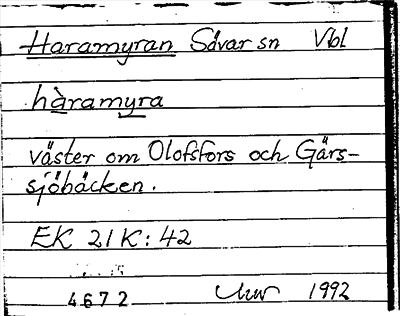 Haramyran Sävar sn Vbl
hàramyra
väster om Olofsfors och Gärs-
sjöbäcken.
EK 21K: 42
4672 1992